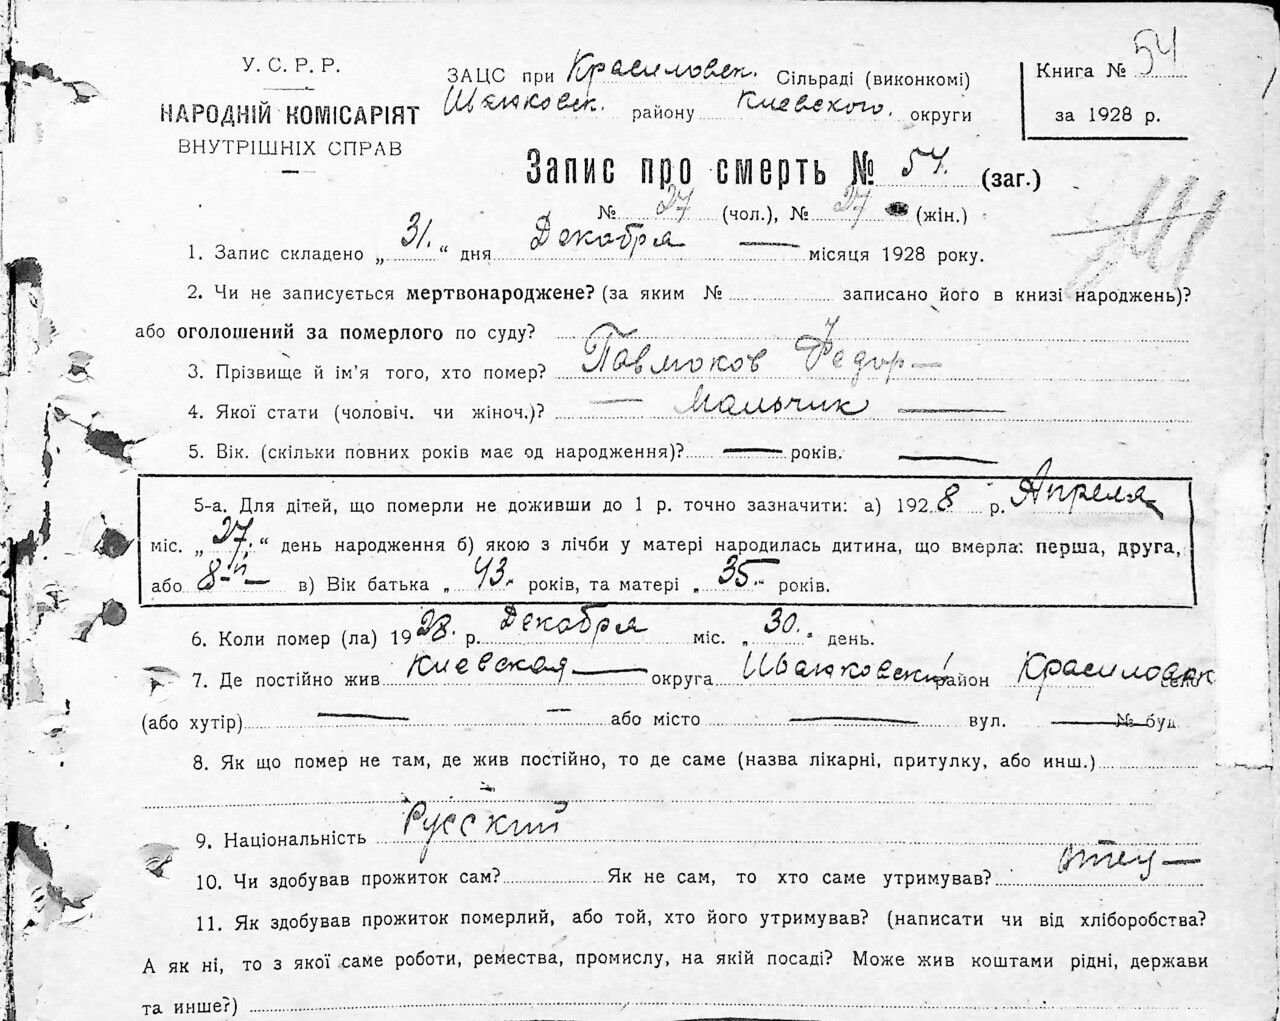 54
У. С. Р. Р.
НАРОДНІЙ КОМІСАРІЯТ
ВНУТРІШНІХ СПРАВ
ЗАЦС при Красиловск. Сільраді (виконкомі)
Иванковск. району Киевского. округи
Книга № 54
за 1928 р.
Запис про смерть № 54. (заг.)
№ 27 (чол.), № 27 (жін.)
1. Запис складено „ 31. “ дня Декабря — місяця 1928 року.
2. Чи не записується мертвонароджене? (за яким № записано його в книзі народжень)?
або оголошений за померлого по суду?
3. Прізвище й ім’я того, хто помер? Федор —
4. Якої стати (чоловіч. чи жіноч.)? — Мальчик —
5. Вік. (скільки повних років має од народження)? — років. —
5-а. Для дітей, що померли не доживши до 1 р. точно зазначити: а) 1928 р. Апреля
міс. „ 27. “ день народження б) якою з лічби у матері народилась дитина, що вмерла: перша, друга,
або 8-й — в) Вік батька „ 43. “ років, та матері „ 35 “ років.
6. Коли помер (ла) 1928. р. Декабря міс. „ 30. “ день.
7. Де постійно жив Киевская — округа Иванковск. район Красиловск село
(або хутір) — — або місто — вул. — № буд
8. Як що помер не там, де жив постійно, то де саме (назва лікарні, притулку, або инш.)
9. Національність Русский
10. Чи здобував прожиток сам? Як не сам, то хто саме утримував? отец —
11. Як здобував прожиток померлий, або той, хто його утримував? (написати чи від хліборобства?
А як ні, то з якої саме роботи, ремества, промислу, на якій посаді? Може жив коштами рідні, держави
та инше?)